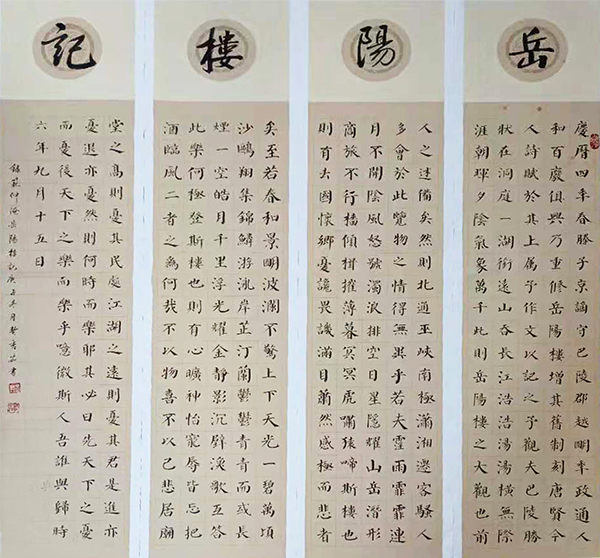 岳
慶曆四年春滕子京謫守巴陵郡越明年政通人
和百廢俱興乃重修岳陽樓增其舊制刻唐賢今
人詩賦於其上属予作文以記之予觀夫巴陵勝
狀在洞庭一湖銜遠山吞長江浩浩湯湯橫無際
涯朝暉夕陰氣象萬千此則岳陽樓之大觀也前
陽
人之述備矣然則北通巫峽南極瀟湘遷客騷人
多會於此覽物之情得無異乎若夫霪雨霏霏連
月不開陰風怒號濁浪排空日星隱耀山岳潛形
商旅不行檣傾楫摧薄暮冥冥虎嘯猿啼斯樓也
則有去國懷鄉憂讒畏譏滿目蕭然感極而悲者
樓
矣至若春和景明波瀾不驚上下天光一碧萬頃
沙鷗翔集錦鱗游泳岸芷汀蘭鬱鬱青青而或長
煙一空皓月千里浮光耀金靜影沉璧漁歌互答
此樂何極登斯樓也則有心曠神怡寵辱皆忘把
酒臨風二者之為何哉不以物喜不以己悲居廟
記
堂之高則憂其民處江湖之遠則憂其君是進亦
憂退亦憂然則何時而樂耶其必曰先天下之憂
而憂後天下之樂而樂乎噫微斯人吾誰與歸時
六年九月十五日
錄範仲淹岳陽樓記庚子月書